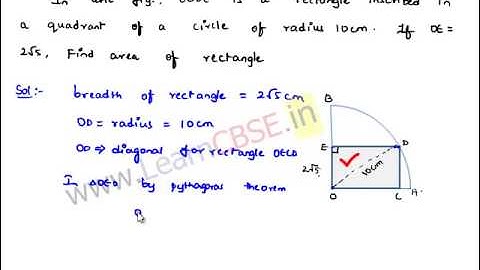 In the fig., OCDE is a rectangle inscribed in
a quadrant of a circle of radius 10cm. If OE =
2√5, Find area of rectangle
Sol :- breadth of rectangle = 2√5cm
OD = radius = 10cm
OD ⇒ diagonal for rectangle OECD
In ΔOED by pythagoras theorem
www.LearnCBSE.in
B
E
D
2√5
10cm
O
C
A